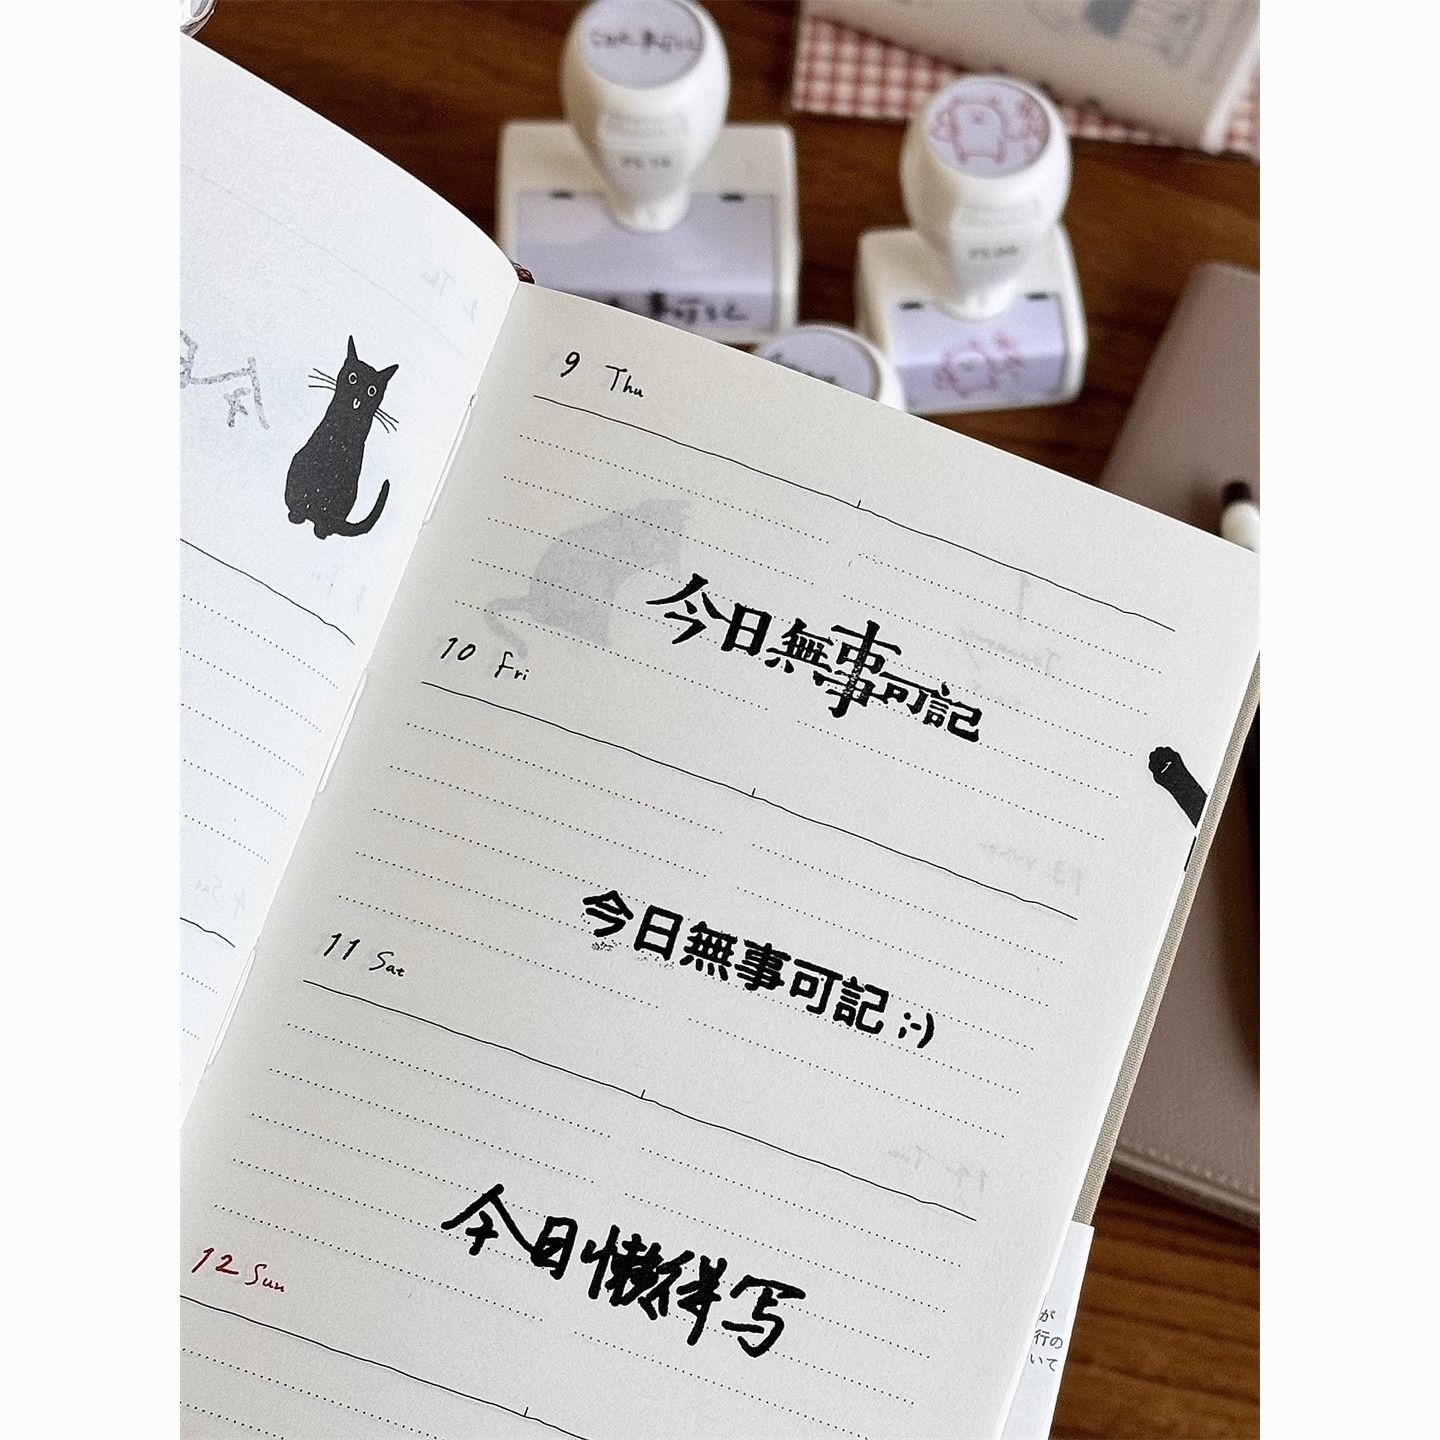 9 Thu
今日無事可記
10 Fri
今日無事可記 ;-)
11 Sat
今日懒得写
12 Sun
が
行の
いて